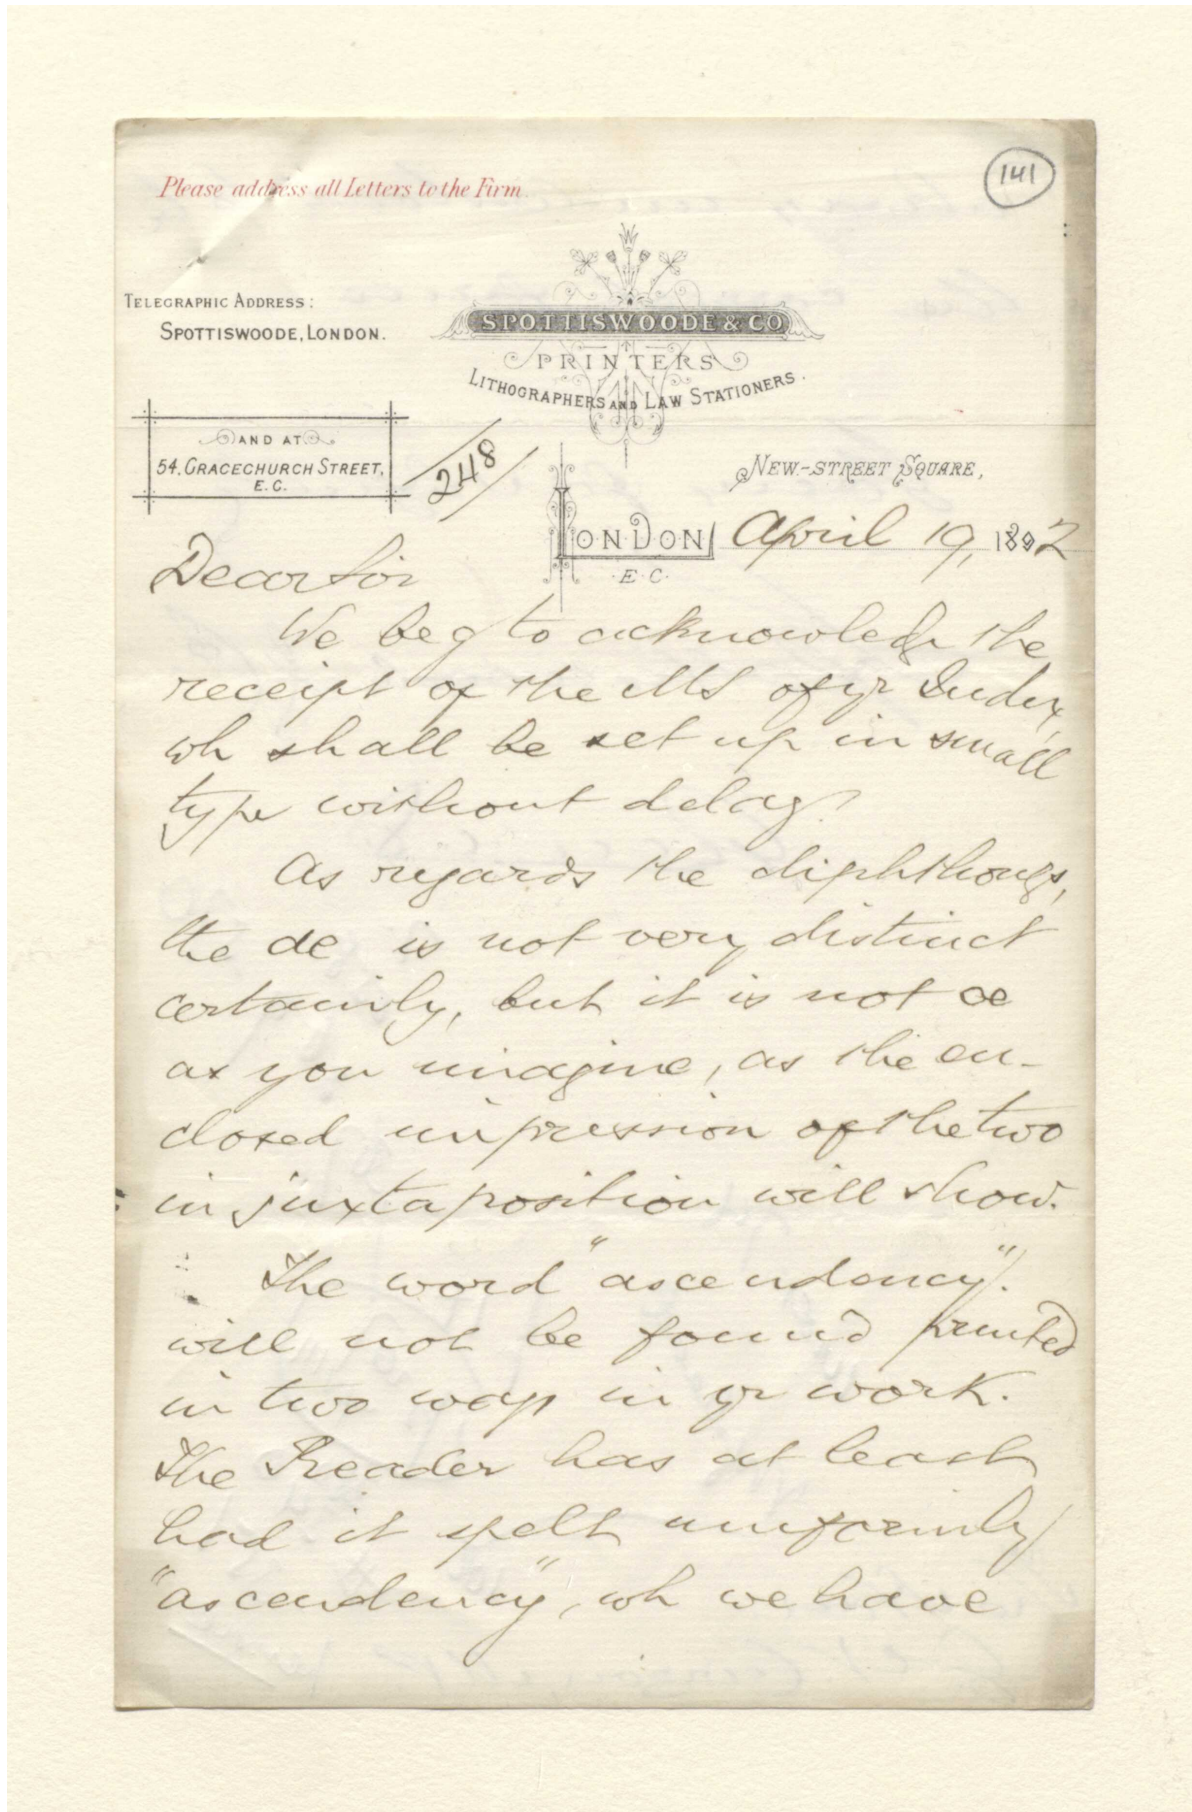 Please address all Letters to the Firm.
141
TELEGRAPHIC ADDRESS:
SPOTTISWOODE, LONDON.
SPOTTISWOODE & CO
PRINTERS
LITHOGRAPHERS AND LAW STATIONERS.
AND AT
54, GRACECHURCH STREET,
E.C.
248
NEW-STREET SQUARE,
LONDON April 19, 1892
E.C.
Dear Sir
We beg to acknowledge the
receipt of the MS of yr Index,
wh shall be set up in small
type without delay.
As regards the diphthongs,
the æ is not very distinct
certainly, but it is not œ
as you imagine, as the en-
closed impression of the two
in juxtaposition will show.
The word "ascendency".
will not be found printed
in two ways in yr work.
The Reader has at least
had it spelt uniformly
"ascendency", wh we have